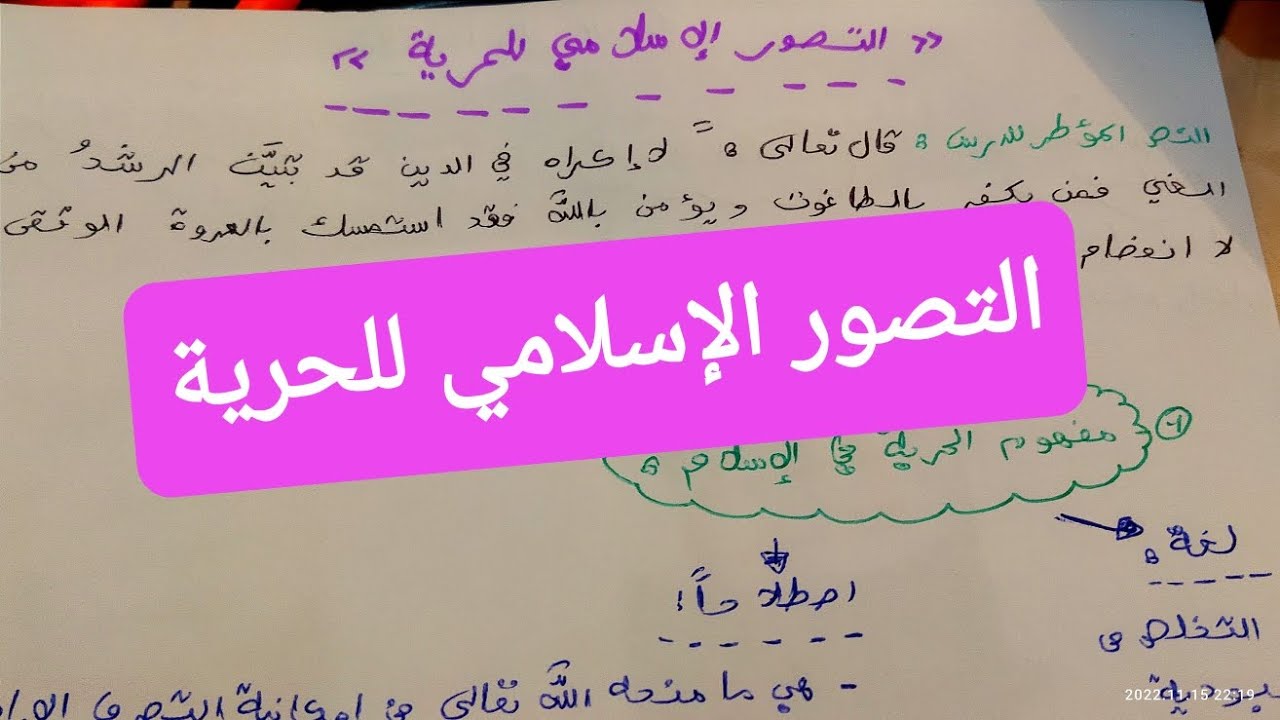 « التصور الإسلامي للحرية »
النص المؤطر للدرس : قال تعالى : " لا إكراه في الدين قد تبيَّن الرشدُ من
الغي فمن يكفر بالطاغوت ويؤمن بالله فقد استمسك بالعروة الوثقى
لا انفصام
التصور الإسلامي للحرية
مفهوم الحرية في الإسلام :
لغة :
اصطلاحاً :
التخلص
- هي ما منحه الله تعالى من إمكانية التصرف
2022.11.15 22:19